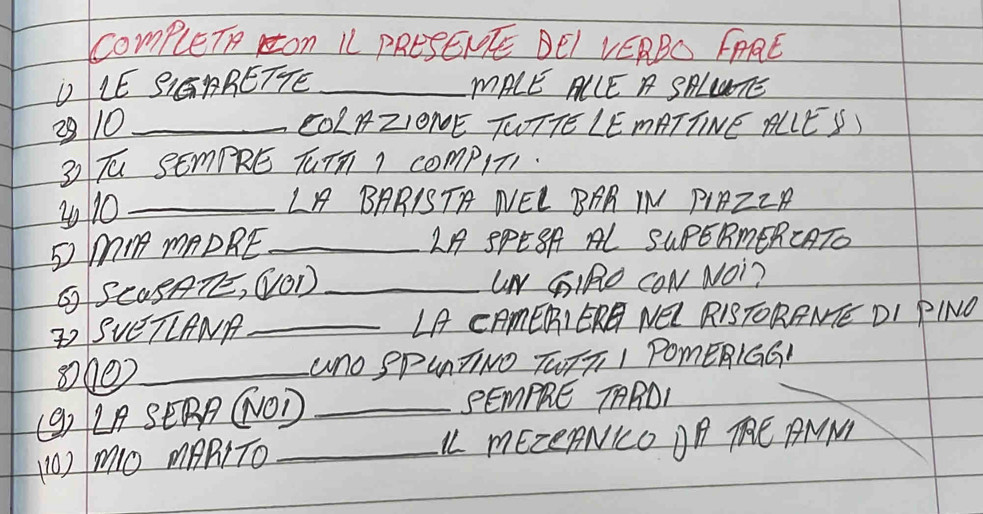 COMPLETA CON IL PRESENTE DEL VERBO FARE
1) LE SIGARETTE ________ MALE ALLE A SALUTE
2) IO ________ COLAZIONE TUTTE LE MATTINE ALLE 8)
3) TU SEMPRE TUTTI I COMPITI.
4) IO ________ LA BARISTA NEL BAR IN PIAZZA
5) MIA MADRE ________ LA SPESA AL SUPERMERCATO
6) SCUSATE, (VOI) ________ UN GIRO CON NOI?
7) SVETLANA ________ LA CAMERIERA NEL RISTORANTE DI PINO
8) (IO) ________ UNO SPUNTINO TUTTI I POMERIGGI
(9) LA SERA (NOI) ________ SEMPRE TARDI
(10) MIO MARITO ________ IL MEZCANICO DA TRE ANNI